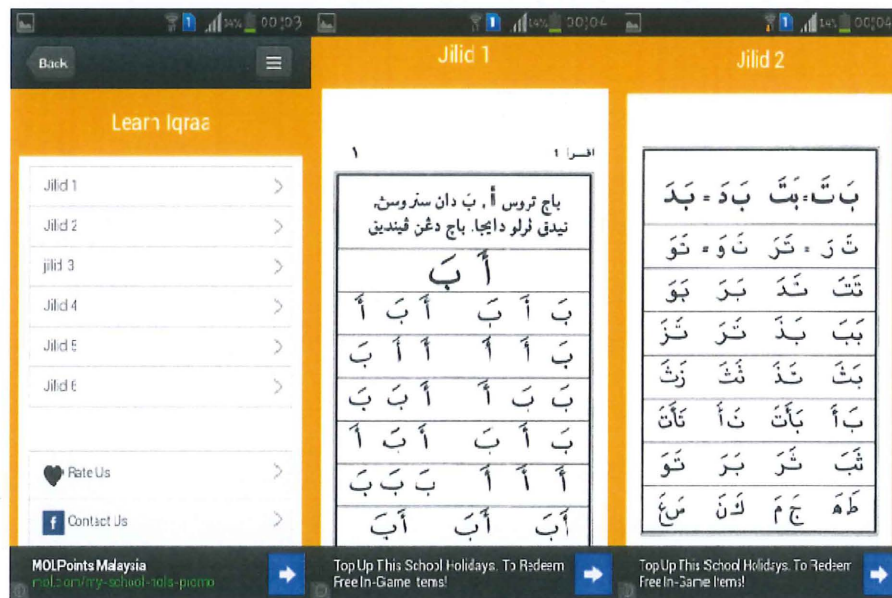 14% 00:03
Back
Learn Iqraa
Jilid 1
Jilid 2
jilid 3
Jilid 4
Jilid 5
Jilid 6
Rate Us
Contact Us
MOLPoints Malaysia
mol.com/my-school-hols-promo
14% 00:04
Jilid 1
١ اقرأ 1
باچ تروس أ , بَ دان ستروسڽ,
تيدق ڤرلو دايجا. باچ دڠن ڤينديق
أَ بَ
بَ أَ بَ أَ بَ أَ
بَ أَ أَ أَ أَ بَ
بَ بَ أَ أَ بَ بَ
بَ أَ بَ أَ بَ أَ
أَ أَ أَ بَ بَ بَ
أَبَ أَبَ أَبَ
Top Up This School Holidays. To Redeem
Free In-Game Items!
14% 00:04
Jilid 2
بَ تَ = بَتَ بَ دَ = بَدَ
تَ رَ = تَرَ نَ وَ = نَوَ
تَتَ تَدَ بَرَ بَوَ
بَبَ بَذَ تَرَ تَزَ
بَثَ تَذَ ثَثَ زَثَ
بَ أَ بَأَتَ نَ أَ تَأَتَ
ثَبَ ثَرَ بَرَ تَوَ
طَهَ جَ مَ كَنَ سَعَ
Top Up This School Holidays. To Redeem
Free In-Game Items!